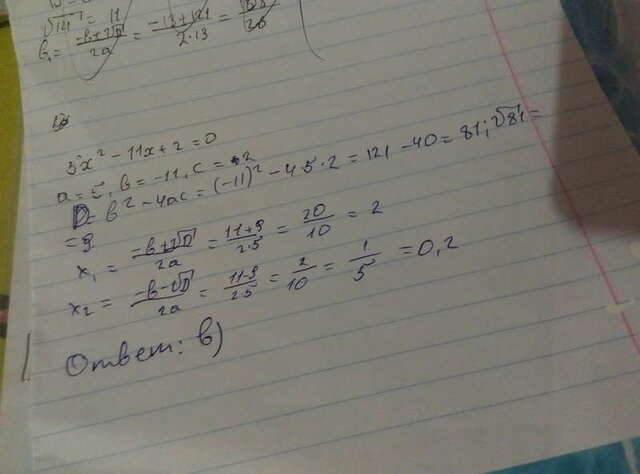 √121 = 11
= (-b+√D)/2a = (-13+121)/(2·13) =
5x² - 11x + 2 = 0
a = 5, b = -11, c = 2
D = b² - 4ac = (-11)² - 4·5·2 = 121 - 40 = 81; √81 =
= 9
x₁ = (-b+√D)/2a = (11+9)/(2·5) = 20/10 = 2
x₂ = (-b-√D)/2a = (11-9)/(2·5) = 2/10 = 1/5 = 0,2
Ответ: в)